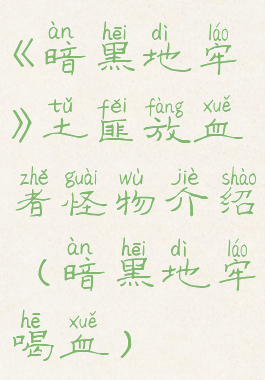 àn hēi dì láo
《暗黑地牢
tǔ fěi fàng xuě
》土匪放血
zhě guài wù jiè shào
者怪物介绍
àn hēi dì láo
（暗黑地牢
hē xuě
喝血）